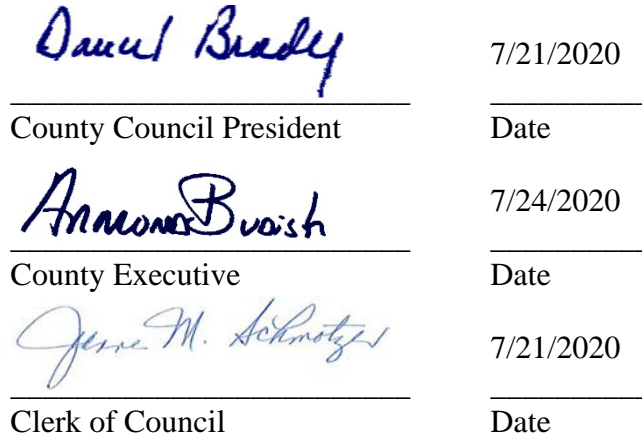 Daniel Brady 7/21/2020
County Council President Date
Armond Budish 7/24/2020
County Executive Date
Jeanne M. Schmotzer 7/21/2020
Clerk of Council Date